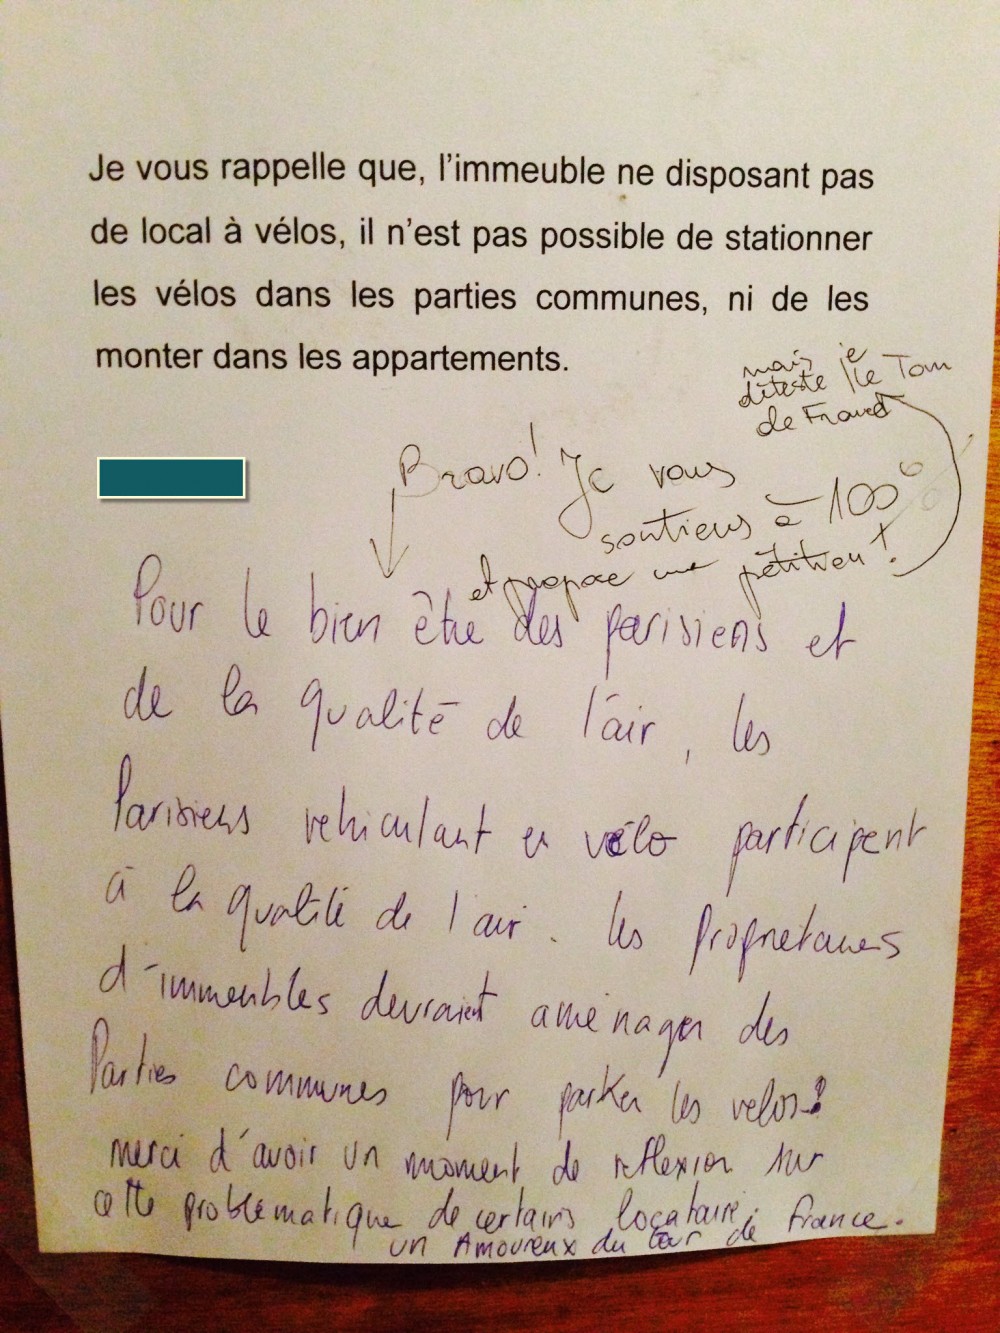 Je vous rappelle que, l'immeuble ne disposant pas
de local à vélos, il n'est pas possible de stationner
les vélos dans les parties communes, ni de les
monter dans les appartements.
mais je
déteste le Tour
de France
Bravo! Je vous
soutiens à 100%
et propose une pétition!
Pour le bien être des parisiens et
de la qualité de l'air, les
Parisiens vehiculant en vélo participent
à la qualité de l'air. les Proprietaires
d'immeubles devraient aménager des
Parties communes pour parker les velos!
merci d'avoir un moment de reflexion sur
cette problématique de certains locataire.
un Amoureux du tour de France.